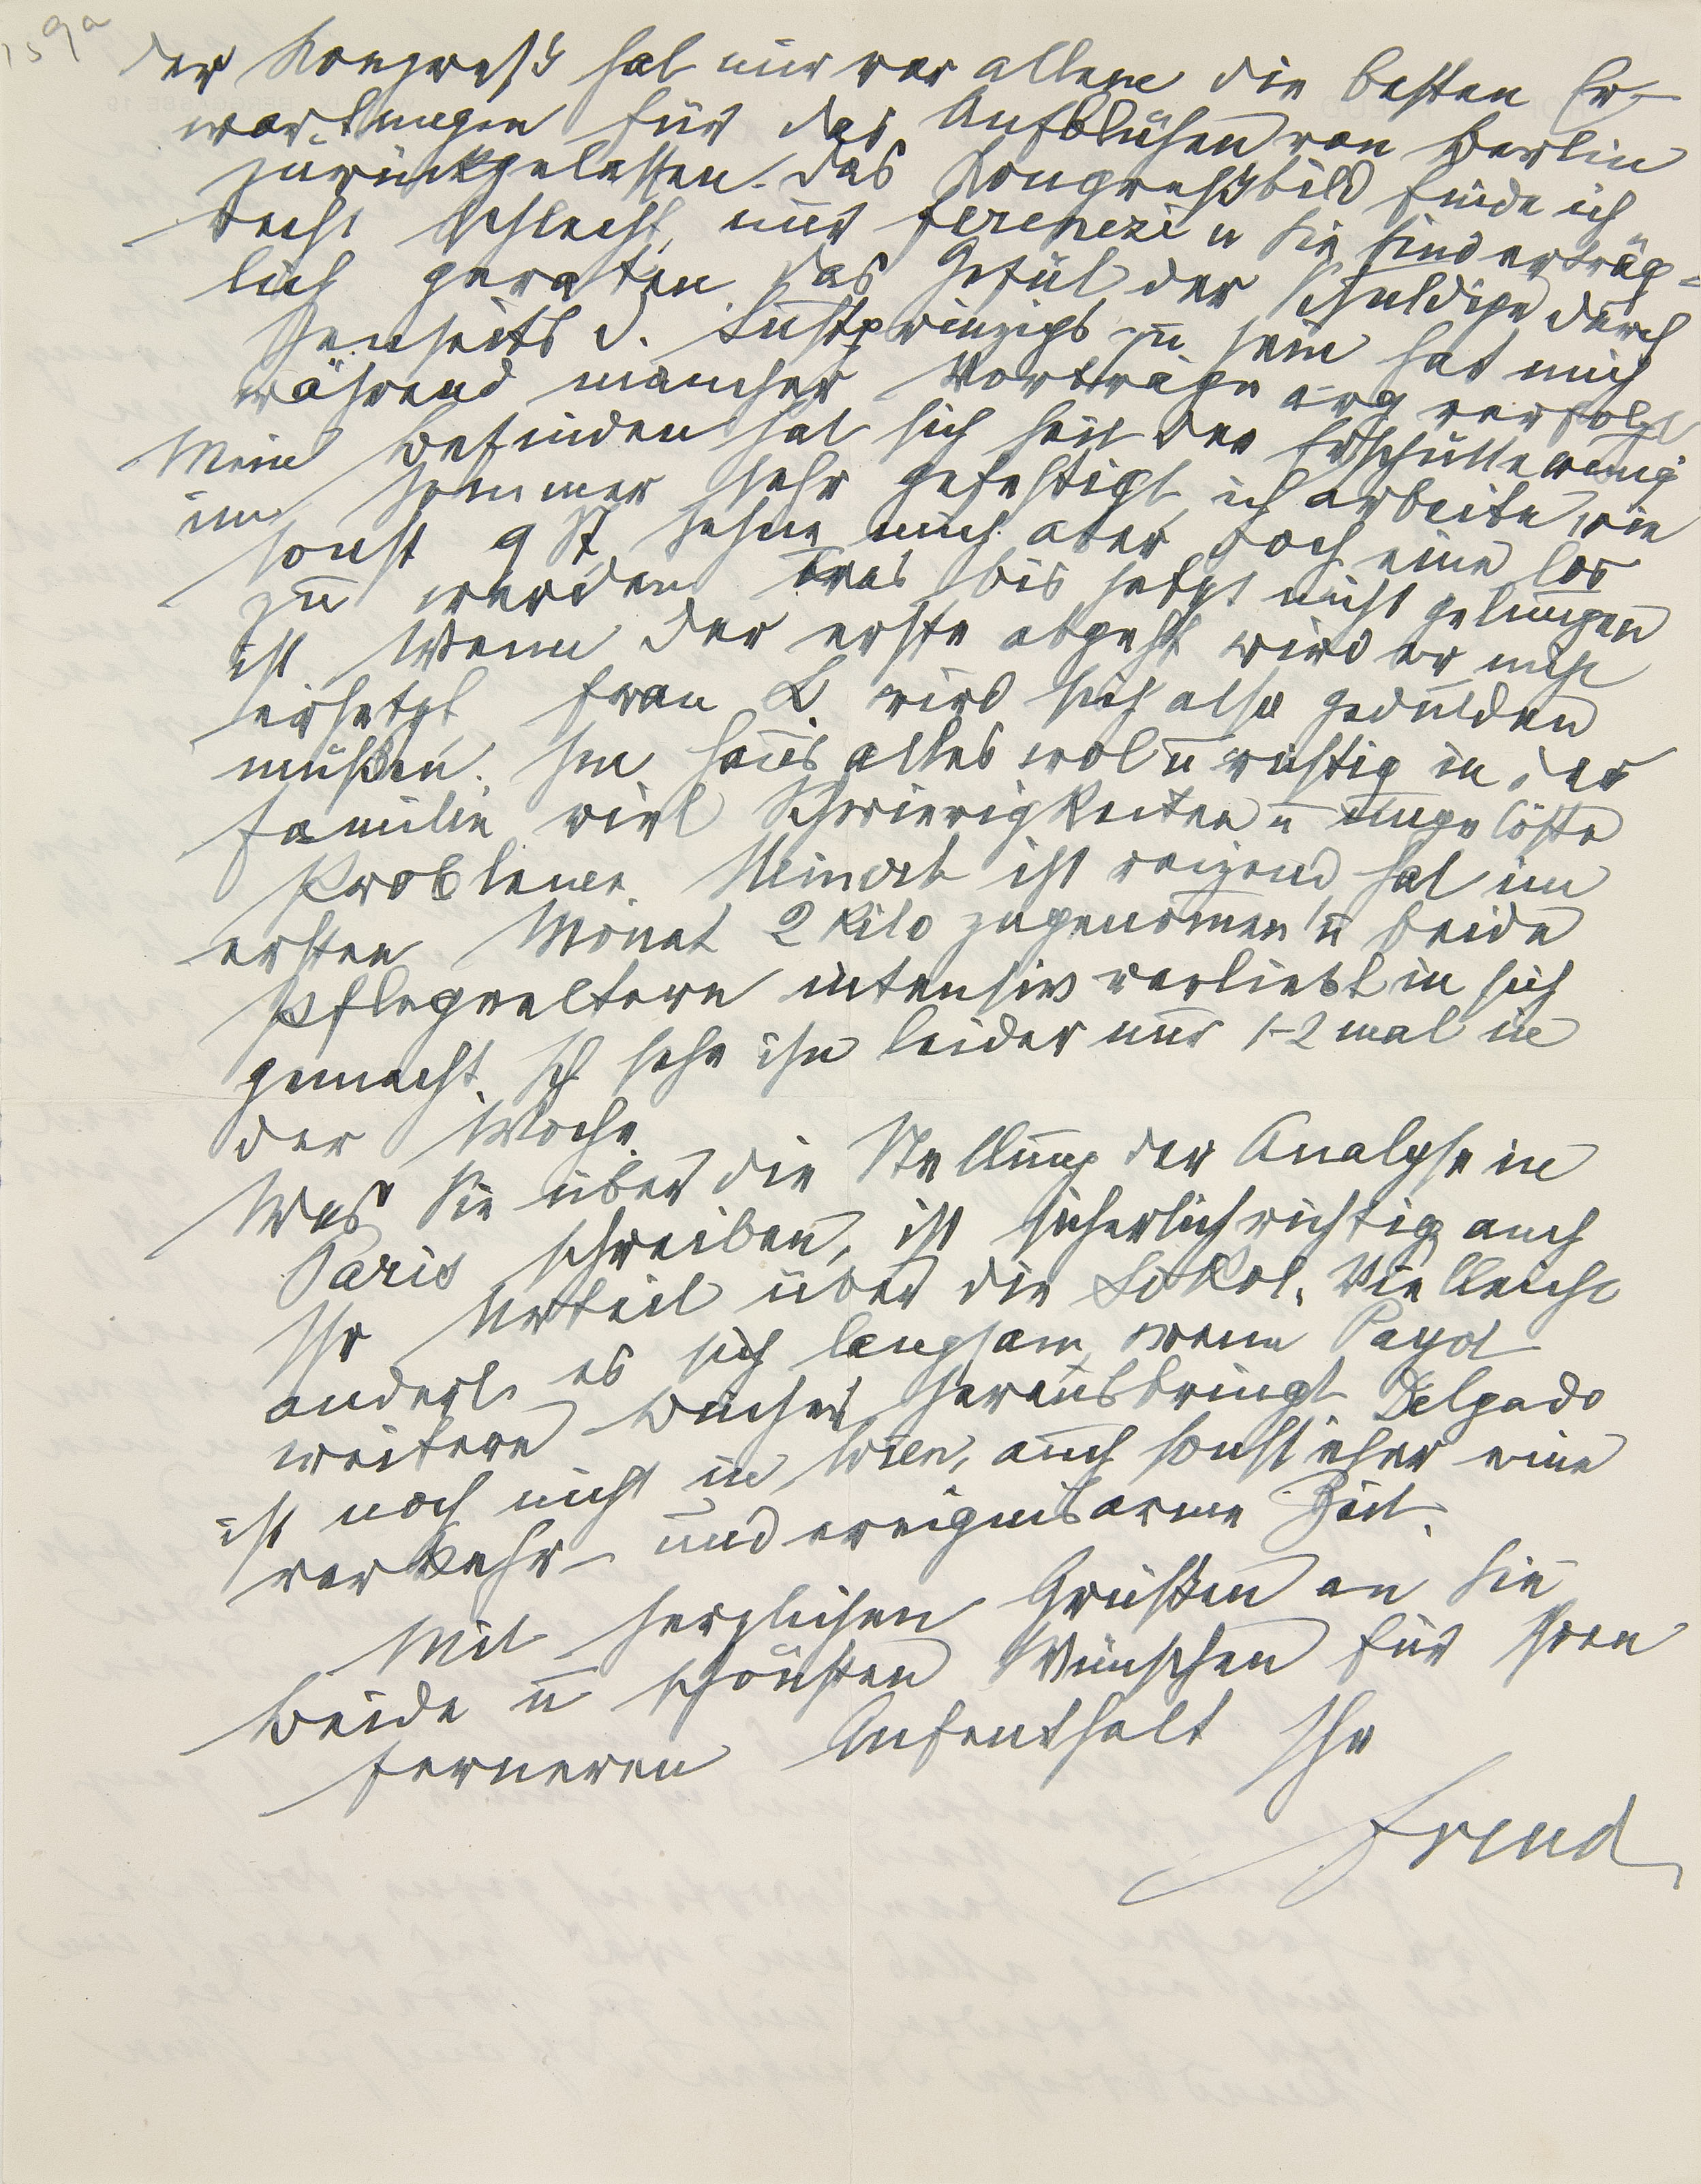 159a
Der Kongreß hat mir vor allem die besten Er-
wartungen für das Aufblühen von Berlin
zurückgelassen. Das Kongreßbild finde ich
recht schlecht, nur Ferenczi u Sie sind erträg-
lich geraten. Das Gefül der Schuldige durch
Jenseits d. Lustprinzips zu sein hat mich
während mancher Vorträge arg verfolgt
Mein Befinden hat sich seit der Erschütterung
im Sommer sehr gefestigt, ich arbeite wie
sonst 9 St, sehne mich aber doch eine los
zu werden was bis jetzt nicht gelungen
ist. Wenn der erste abgeht wird er nicht
ersetzt. Frau L. wird sich also gedulden
müßen. Im Haus alles wol u rüstig in der
Familie viel Schwierigkeiten u ungelöste
Probleme. Heinerle ist reizend hat im
ersten Monat 2 Kilo zugenommen u beide
Pflegeeltern intensiv verliebt in sich
gemacht. Ich sehe ihn leider nur 1-2 mal in
der Woche.
Was Sie über die Stellung der Analyse in
Paris schreiben, ist sicherlich richtig auch
Ihr Urteil über die Sokol. Vielleicht
ändert es sich langsam, wenn Payot
weitere Bücher herausbringt. Delgado
ist noch nicht in Wien, auch sonst eher eine
verkehr- und ereignisarme Zeit.
Mit herzlichen Grüßen an Sie
beide u schönsten Wünschen für Ihren
ferneren Aufenthalt Ihr
Freud